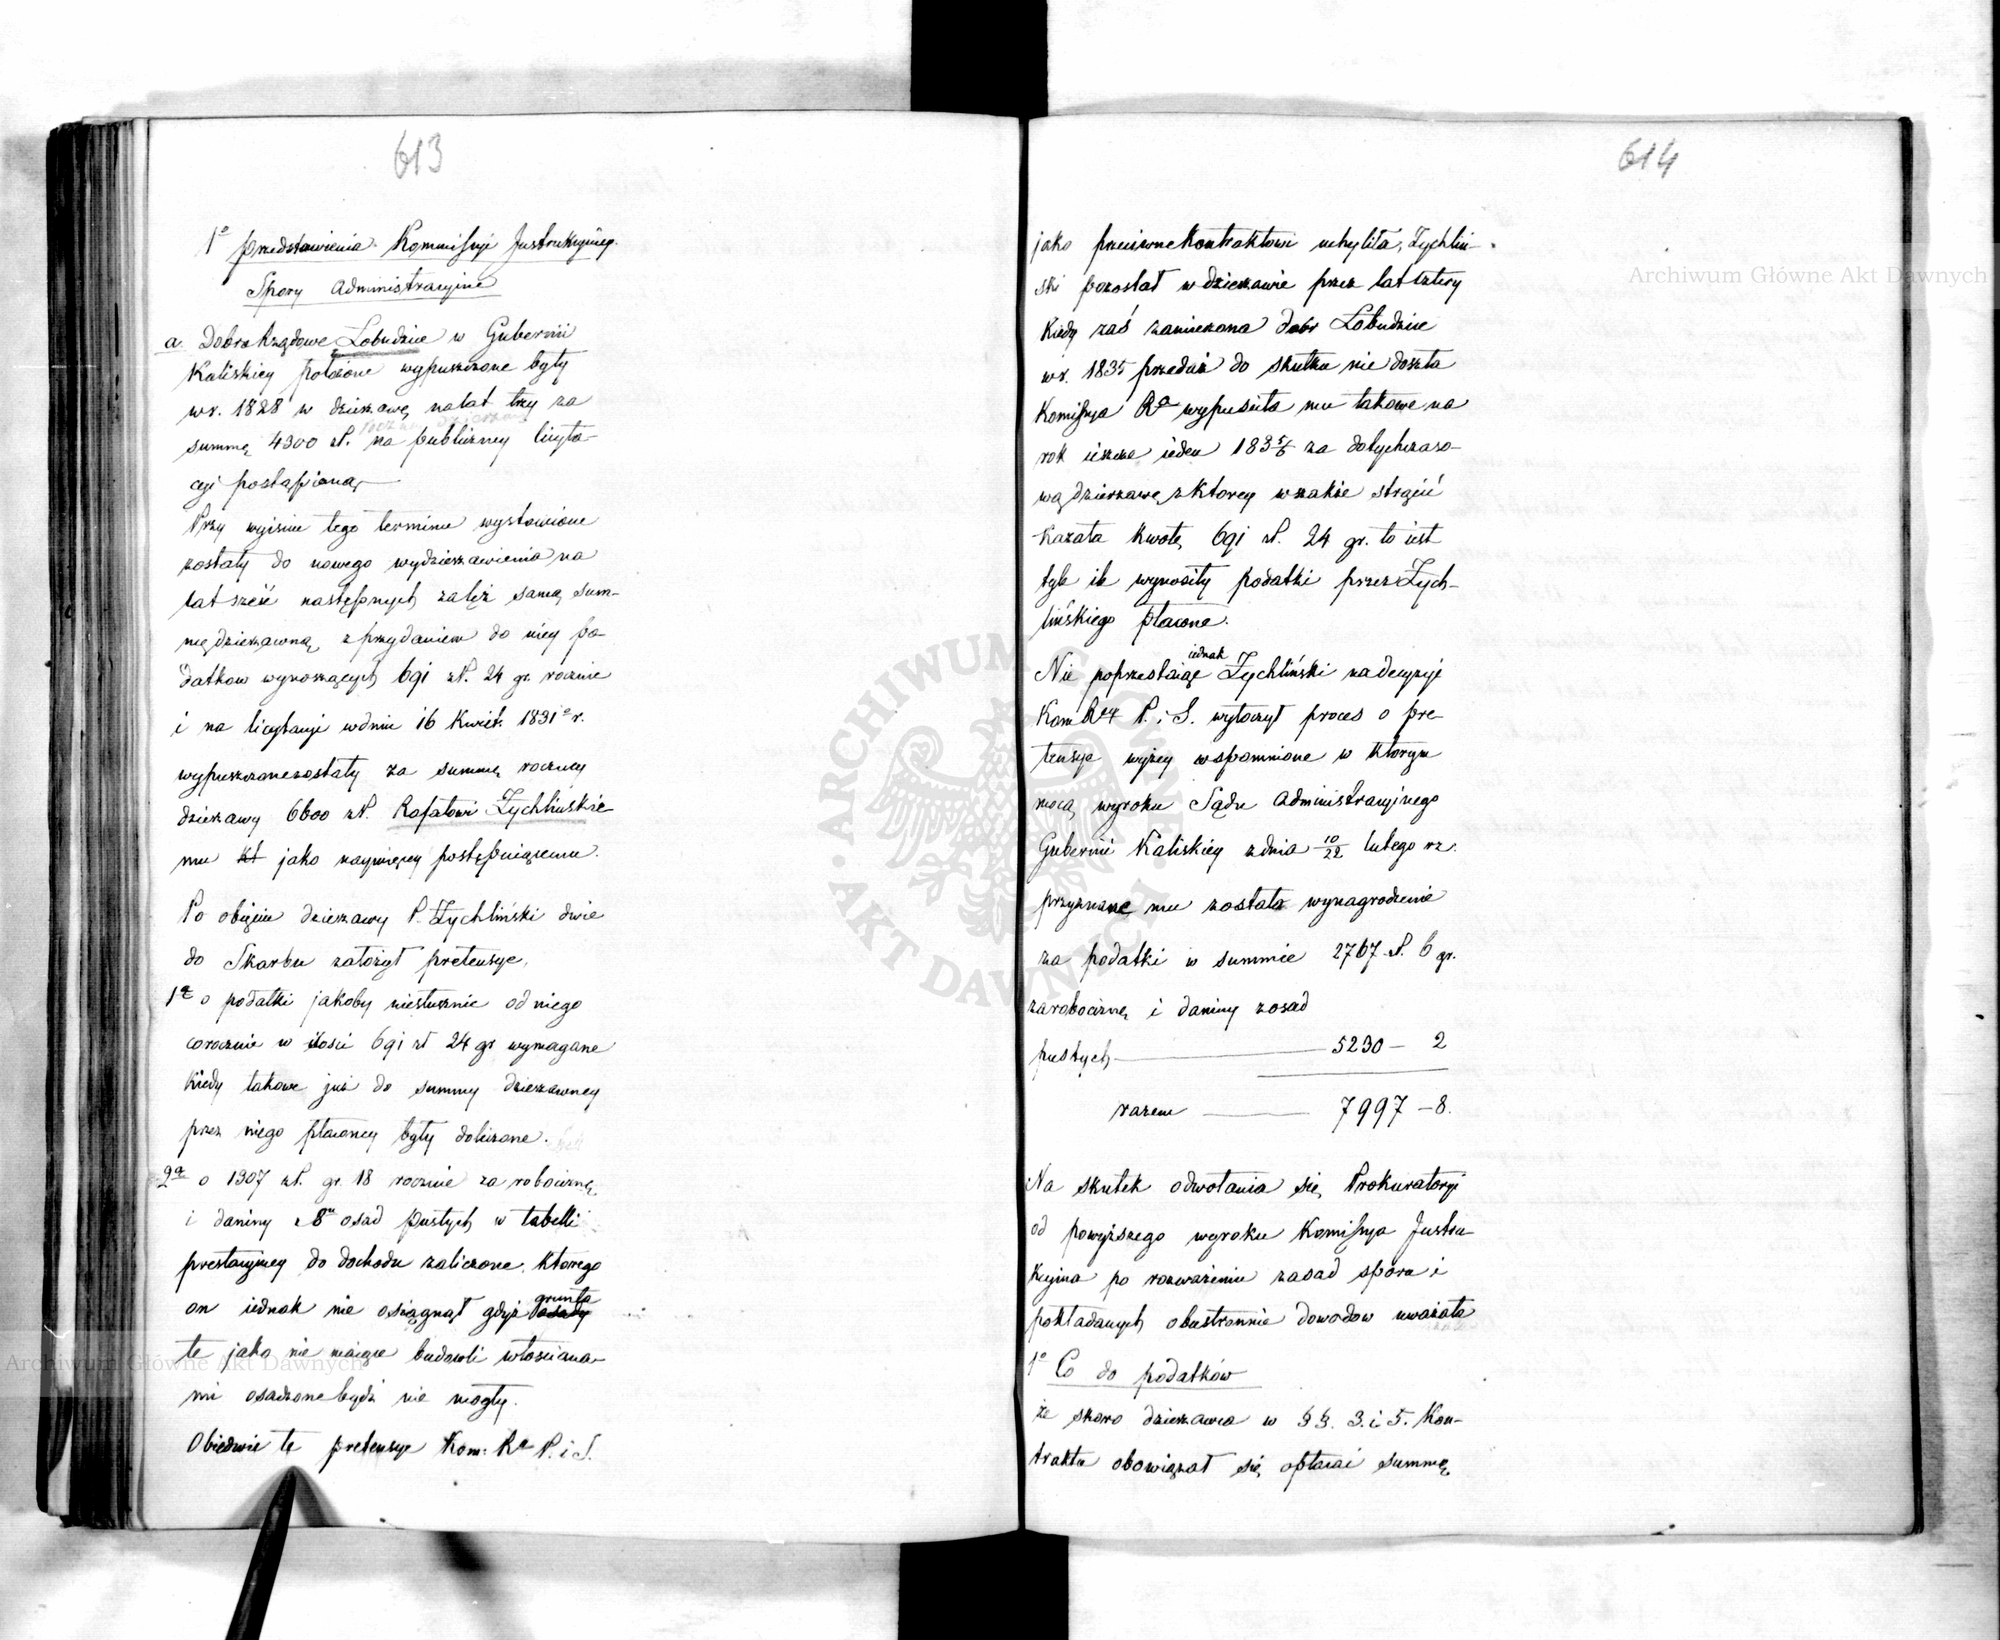 613
1º Przedstawienia Kommissyi Justrukcyiney.
Spory Administracyine
a. Dobra Rządowe Łobudzice w Gubernii
Kaliskiey położone wypuszczone były
w r. 1828 w dzierzawę na lat trzy za
summę 4300 zł. na publiczney licyta-
cyi postąpioną
Przy wyisciu tego terminu wystawione
zostały do nowego wydzierzawienia na
lat sześć następnych za tęż samą sum-
mę dzierzawną z przydaniem do niey po-
datkow wynoszących 691 zł. 24 gr. rocznie
i na licytacyi w dniu 16 Kwiet. 1831º r.
wypuszczone zostały za summę roczney
dzierzawy 6600 zł. Rafałowi Zychlińskie
mu kt jako naywięcey postępuiącemu.
Po obięciu dzierzawy P. Zychliński dwie
do Skarbu założył pretensye.
1ª o podatki jakoby niesłusznie od niego
corocznie w ilości 691 zł 24 gr wymagane
kiedy takowe już do summy dzierzawney
przez niego płaconey były doliczone.
2ª o 1307 zł. gr. 18 rocznie za robociznę
i daniny z 8u osad pustych w tabelli
prestacyiney do dochodu zaliczone, ktorego
on iednak nie osiągnął gdyż osady grunta
te jako nie maiące budowli włosciana-
mi osadzone bydź nie mogły.
Obiedwie te pretensye Kom: Ra P. i S.
614
jako przeciwne kontraktowi uchyliła, Zychlin-
ski pozostał w dzierzawie przez lat cztery
Kiedy zaś zamierzona dobr Łobudzice
w r. 1835 przedaż do skutku nie doszła
Komissya Ra wypuściła mu takowe na
rok ieszcze ieden 1835/6 za dotychczaso-
wą dzierzawę, z ktorey wszakże strącić
kazała kwotę 691 zł. 24 gr. to iest
tyle ile wynosiły podatki przez Zych-
lińskiego płacone.
Nie poprzestaiąc iednak Zychliński na decyzyi
Kom Rey P. i S. wytoczył proces o pre-
tensye wyżey wspomnione w ktorym
mocą wyroku Sądu Administracyinego
Gubernii Kaliskiey z dnia 10/22 lutego rz.
przyznane mu zostało wynagrodzenie
za podatki w summie 2767 zł. 6 gr.
za robociznę i daniny z osad
pustych 5230 - 2
razem 7997 - 8.
Na skutek odwołania się Prokuratoryi
od powyższego wyroku Komissya Justru
kcyina po rozważeniu zasad sporu i
pokładanych obustronnie dowodow uważała
1º Co do podatków
że skoro dzierzawca w §§. 3. i 5. Kon-
traktu obowiązał się opłacać summę
Archiwum Główne Akt Dawnych
Archiwum Główne Akt Dawnych
ARCHIWUM GŁÓWNE AKT DAWNYCH